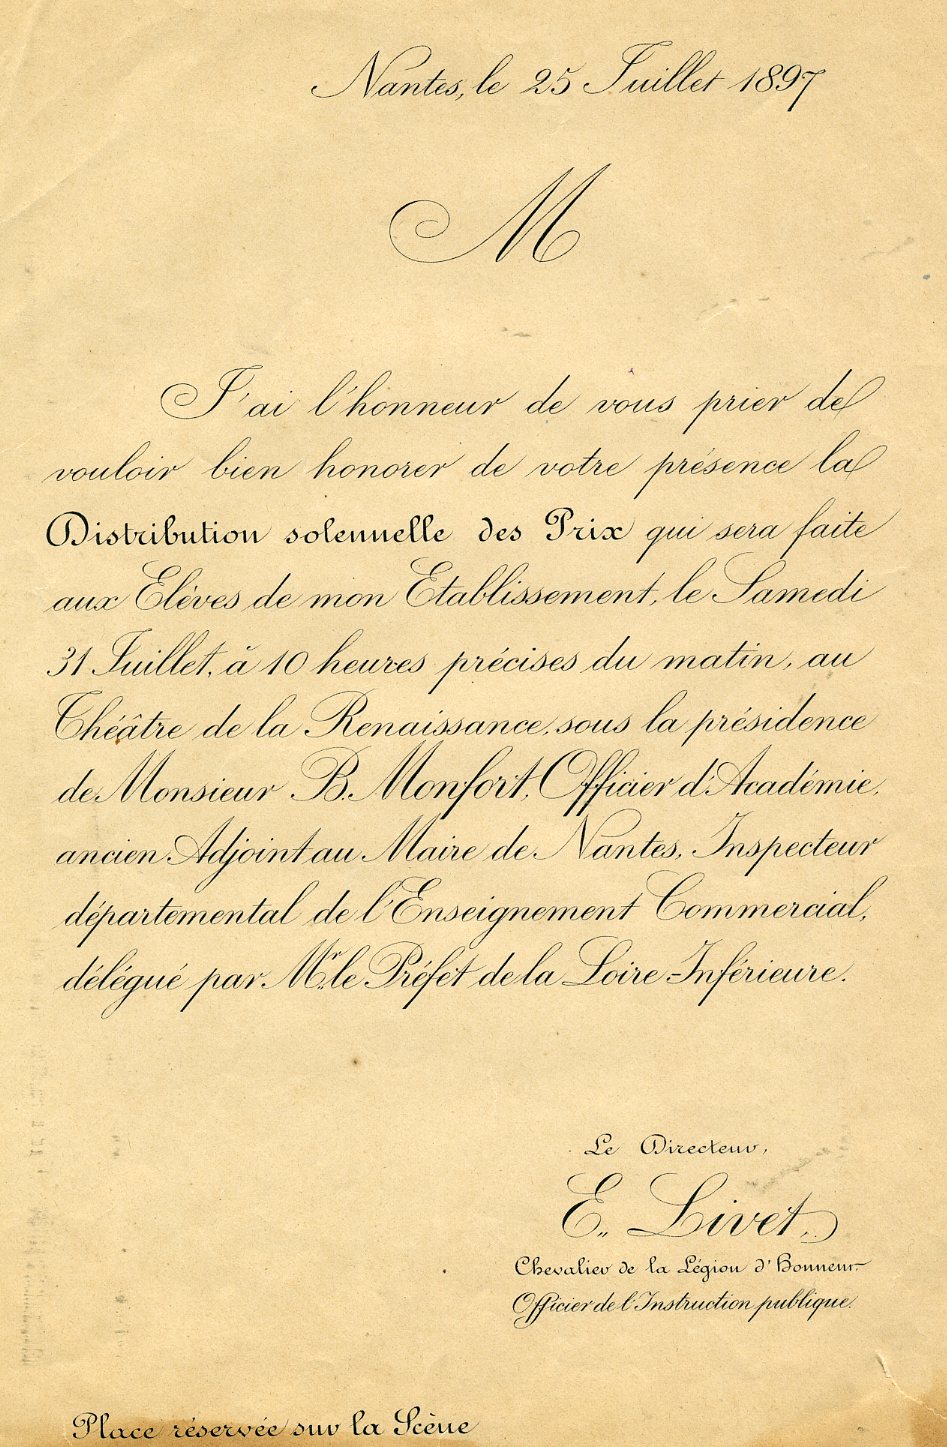 Nantes, le 25 Juillet 1897
M
J'ai l'honneur de vous prier de
vouloir bien honorer de votre présence la
Distribution solennelle des Prix qui sera faite
aux Elèves de mon Etablissement, le Samedi
31 Juillet, à 10 heures précises du matin, au
Théâtre de la Renaissance, sous la présidence
de Monsieur B. Monfort, Officier d'Académie,
ancien Adjoint au Maire de Nantes, Inspecteur
départemental de l'Enseignement Commercial,
délégué par Mr. le Préfet de la Loire-Inférieure.
Le Directeur,
E. Livet,
Chevalier de la Légion d'Honneur
Officier de l'Instruction publique.
Place réservée sur la Scène